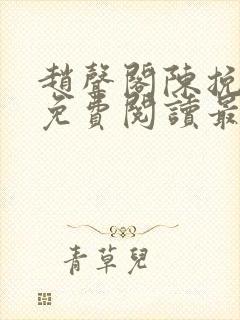 趙聲閣陳挽
免費閱讀最
青草兒